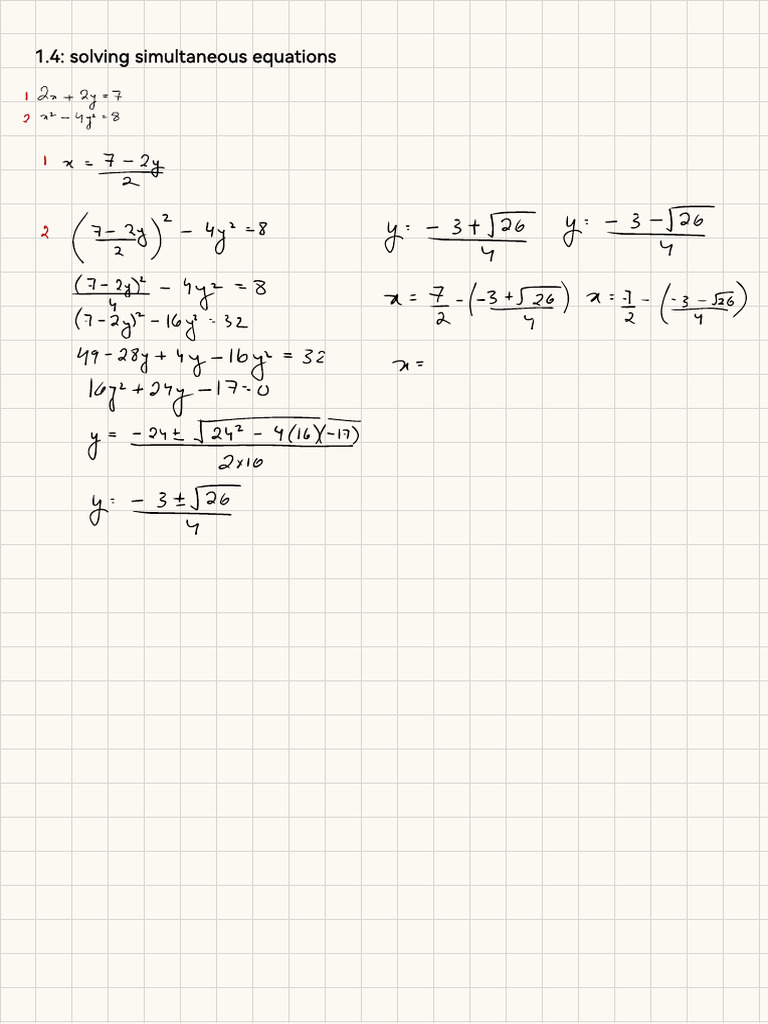 1.4: solving simultaneous equations
1 2x + 2y = 7
2 x² - 4y² = 8
1 x = (7 - 2y)/2
2 ((7 - 2y)/2)² - 4y² = 8
(7 - 2y)²/4 - 4y² = 8
(7 - 2y)² - 16y² = 32
49 - 28y + 4y - 16y² = 32
16y² + 24y - 17 = 0
y = (-24 ± √(24² - 4(16)(-17)))/(2×16)
y = (-3 ± √26)/4
y = (-3 + √26)/4 y = (-3 - √26)/4
x = 7/2 - ((-3 + √26)/4) x = 7/2 - ((-3 - √26)/4)
x =